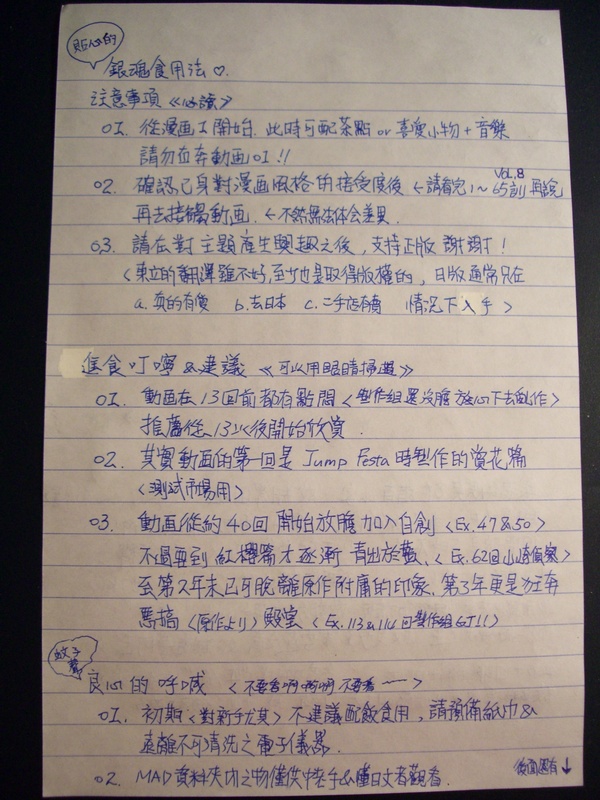 貼心的
銀魂食用法♡.
注意事項 《必讀》
01. 從漫画I開始. 此時可配茶點 or 喜愛小物 + 音樂
請勿直奔動画01!!
Vol.8
02. 確認己身對漫画風格的接受度後 ← 請看完1~65訓 再說
再去接觸動画. ← 不然無法体会差異.
03. 請在對主題產生興趣之後, 支持正版 謝謝!
<東立的翻譯雖不好,至少也是取得版權的, 日版通常只在
a. 真的有愛 b.去日本 c.二手店有賣 情況下入手 >
進食叮嚀&建議 《可以用眼睛掃過》
01. 動画在13回前都有點悶 <製作組還沒膽放心下去亂作>
推薦從13以後開始欣賞.
02. 其實動画的第一回是 Jump Festa 時製作的賞花篇
<測試市場用>
03. 動画從約40回開始放膽加入自創 <Ex.47&50>
不過要到紅櫻篇才逐漸 青出於藍. <Ex.62回山崎偵察>
至第2年末已可脫離原作附庸的印象. 第3年更是狂奔
惡搞 <原作より> 殿堂 <Ex.113&114回製作組GJ!!>
蚊子篇
良心的呼喊 <不要看啊啊啊 不要看——>
01. 初期<對新手尤其>不建議配飯食用, 請預備紙巾&
遠離不可清洗之電子儀器.
02. MAD資料夾內之物僅供中老手&懂日文者觀看.
後面還有↓